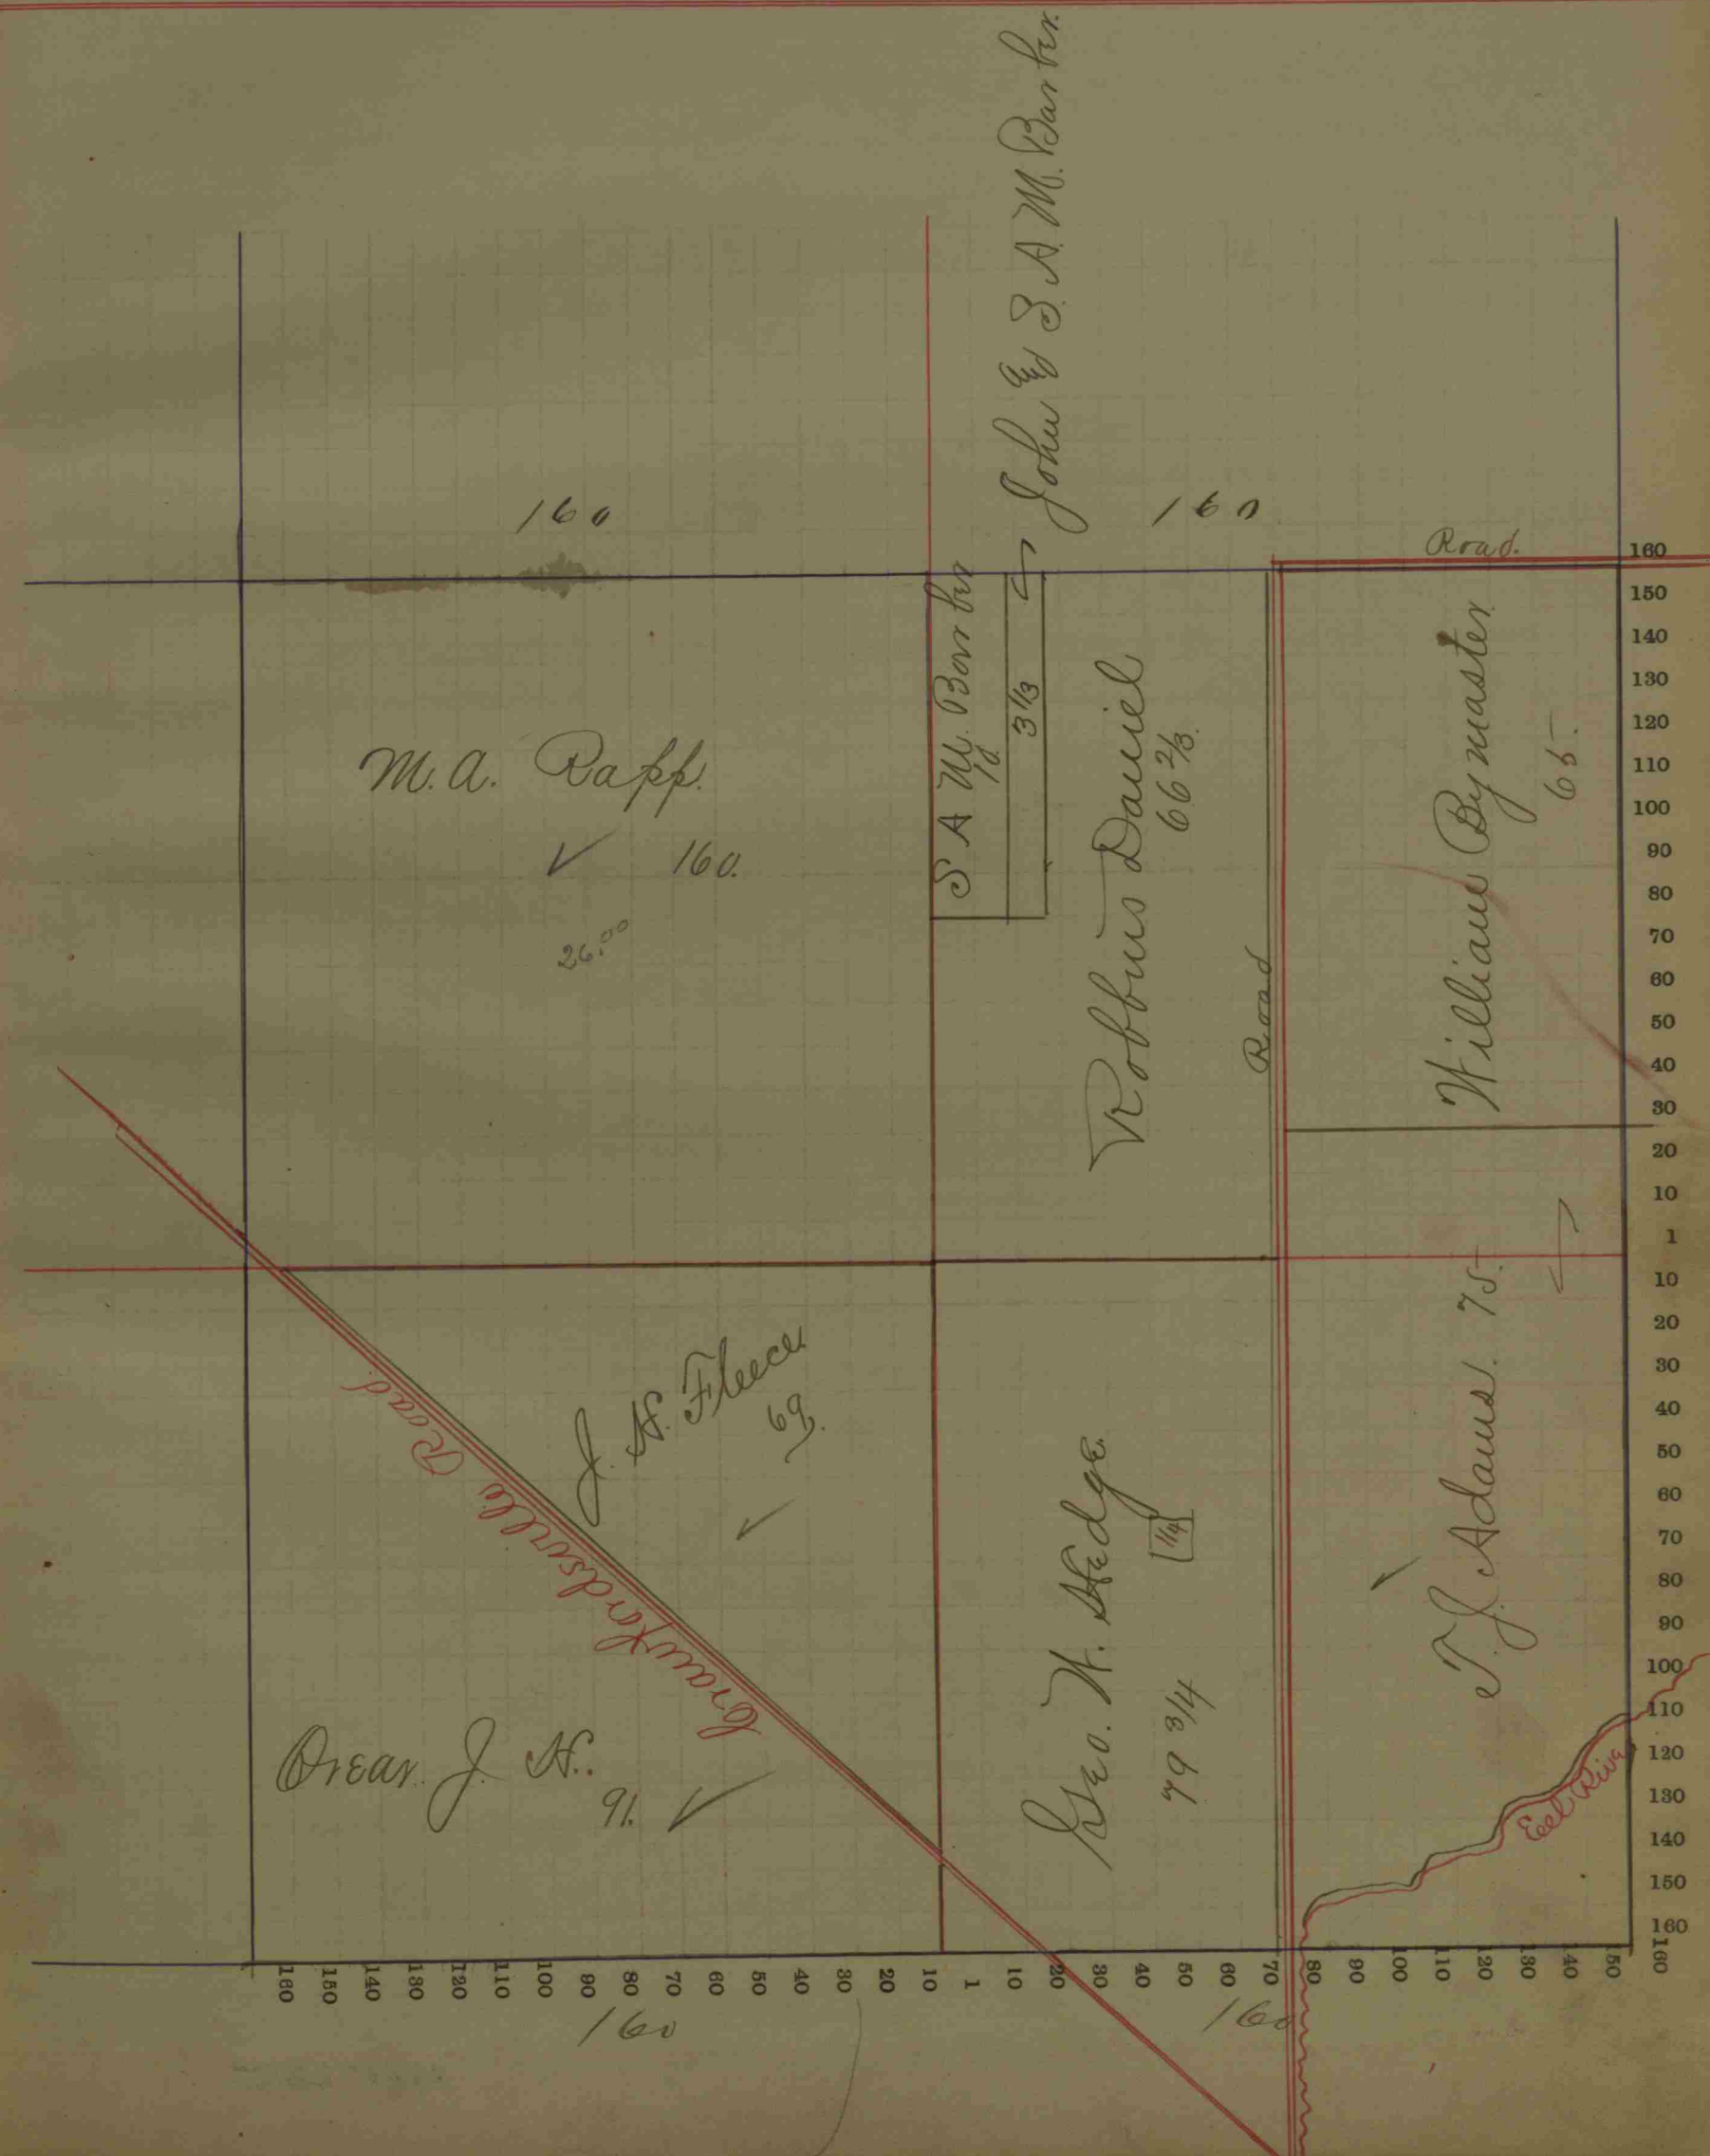 John & S. A. M. Barber.
160
160
Road.
S A M. Barber
10
3 1/3
M. A. Rapp.
160.
26.00
Robbins Daniel
66 2/3.
Road
William Bymaster
65.
J. H. Fleece.
69.
Crawfordsville Road.
Orear. J. H.
91.
Geo. W. Hedge.
1/4
79 3/4
T. J. Adams. 75.
Eel River
160
150
140
130
120
110
100
90
80
70
60
50
40
30
20
10
1
10
20
30
40
50
60
70
80
90
100
110
120
130
140
150
160
160 150 140 130 120 110 100 90 80 70 60 50 40 30 20 10 1 10 20 30 40 50 60 70 80 90 100 110 120 130 140 150 160
160
160